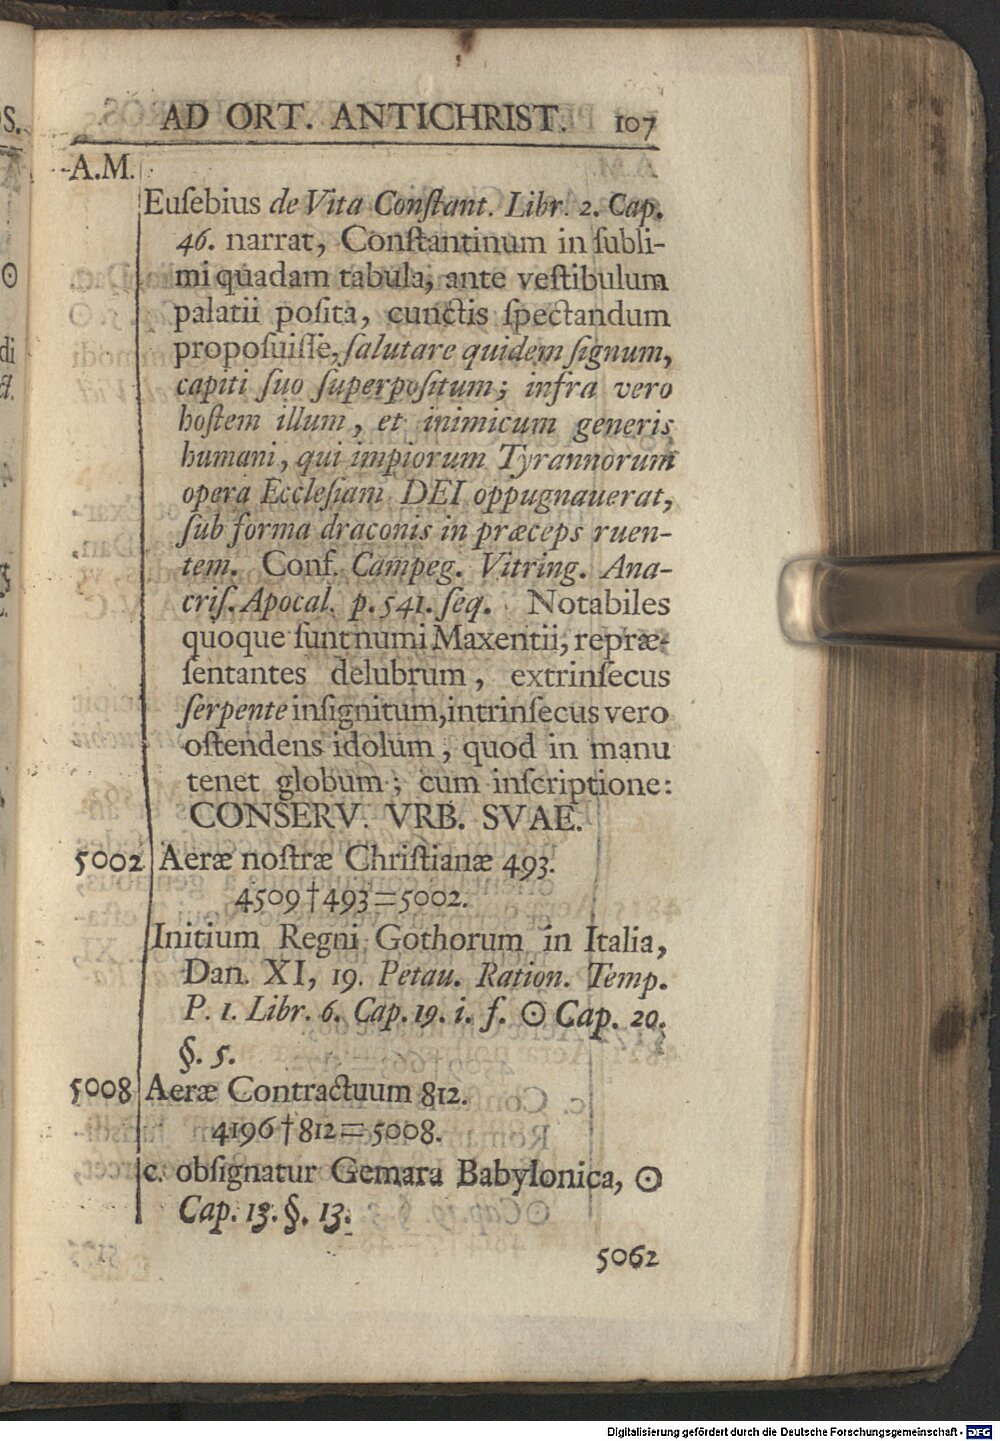 AD ORT. ANTICHRIST. 107
A.M.
Euſebius de Vita Conſtant. Libr. 2. Cap.
46. narrat, Conſtantinum in ſubli-
mi quadam tabula, ante veſtibulum
palatii poſita, cunctis ſpectandum
propoſuiſſe, ſalutare quidem ſignum,
capiti ſuo ſuperpoſitum; infra vero
hoſtem illum, et inimicum generis
humani, qui impiorum Tyrannorum
opera Eccleſiam DEI oppugnauerat,
ſub forma draconis in præceps ruen-
tem. Conf. Campeg. Vitring. Ana-
criſ. Apocal. p. 541. ſeq. Notabiles
quoque ſunt numi Maxentii, repræ-
ſentantes delubrum, extrinſecus
ſerpente inſignitum, intrinſecus vero
oſtendens idolum, quod in manu
tenet globum; cum inſcriptione:
CONSERV. VRB. SVAE.
5002 Aeræ noſtræ Chriſtianæ 493.
4509†493=5002.
Initium Regni Gothorum in Italia,
Dan. XI, 19. Petau. Ration. Temp.
P. 1. Libr. 6. Cap. 19. i. f. ☉ Cap. 20.
§. 5.
5008 Aeræ Contractuum 812.
4196†812=5008.
c. obſignatur Gemara Babylonica, ☉
Cap. 13. §. 13.
5062
Digitalisierung gefördert durch die Deutsche Forschungsgemeinschaft - DFG